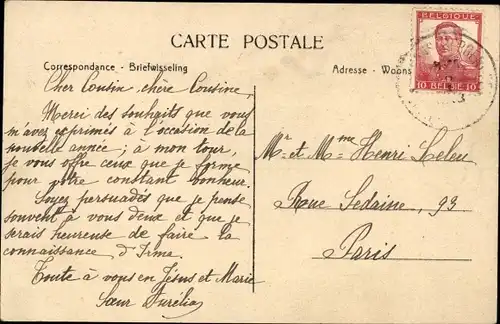 CARTE POSTALE
Correspondance - Briefwisseling
Adresse - Woons
BELGIQUE
10 BELGIË 10
Cher Cousin, chère Cousine,
Merci des souhaits que vous
m'avez exprimés à l'occasion de la
nouvelle année ; à mon tour,
je vous offre ceux que je forme
pour votre constant bonheur.
Soyez persuadés que je pense
souvent à vous deux et que je
serais heureuse de faire la
connaissance d'Irme.
Toute à vous en Jésus et Marie
Sœur Aurélia
Mr et Mme Henri Leleu
Rue Sedaine, 93
Paris